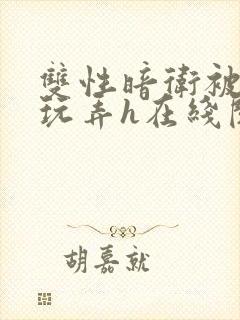 雙性暗衛被
玩弄h在綫閱
胡嘉就